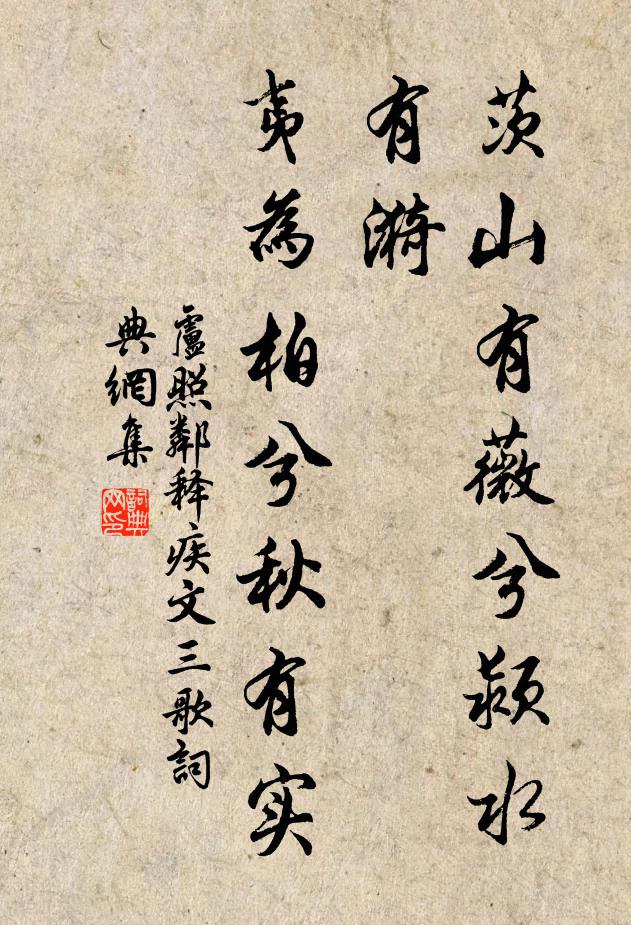 茨山有薇兮颍水
有漪
夷為柏兮秋有实
盧照鄰释疾文三歌詞
典網集
詞典
网印